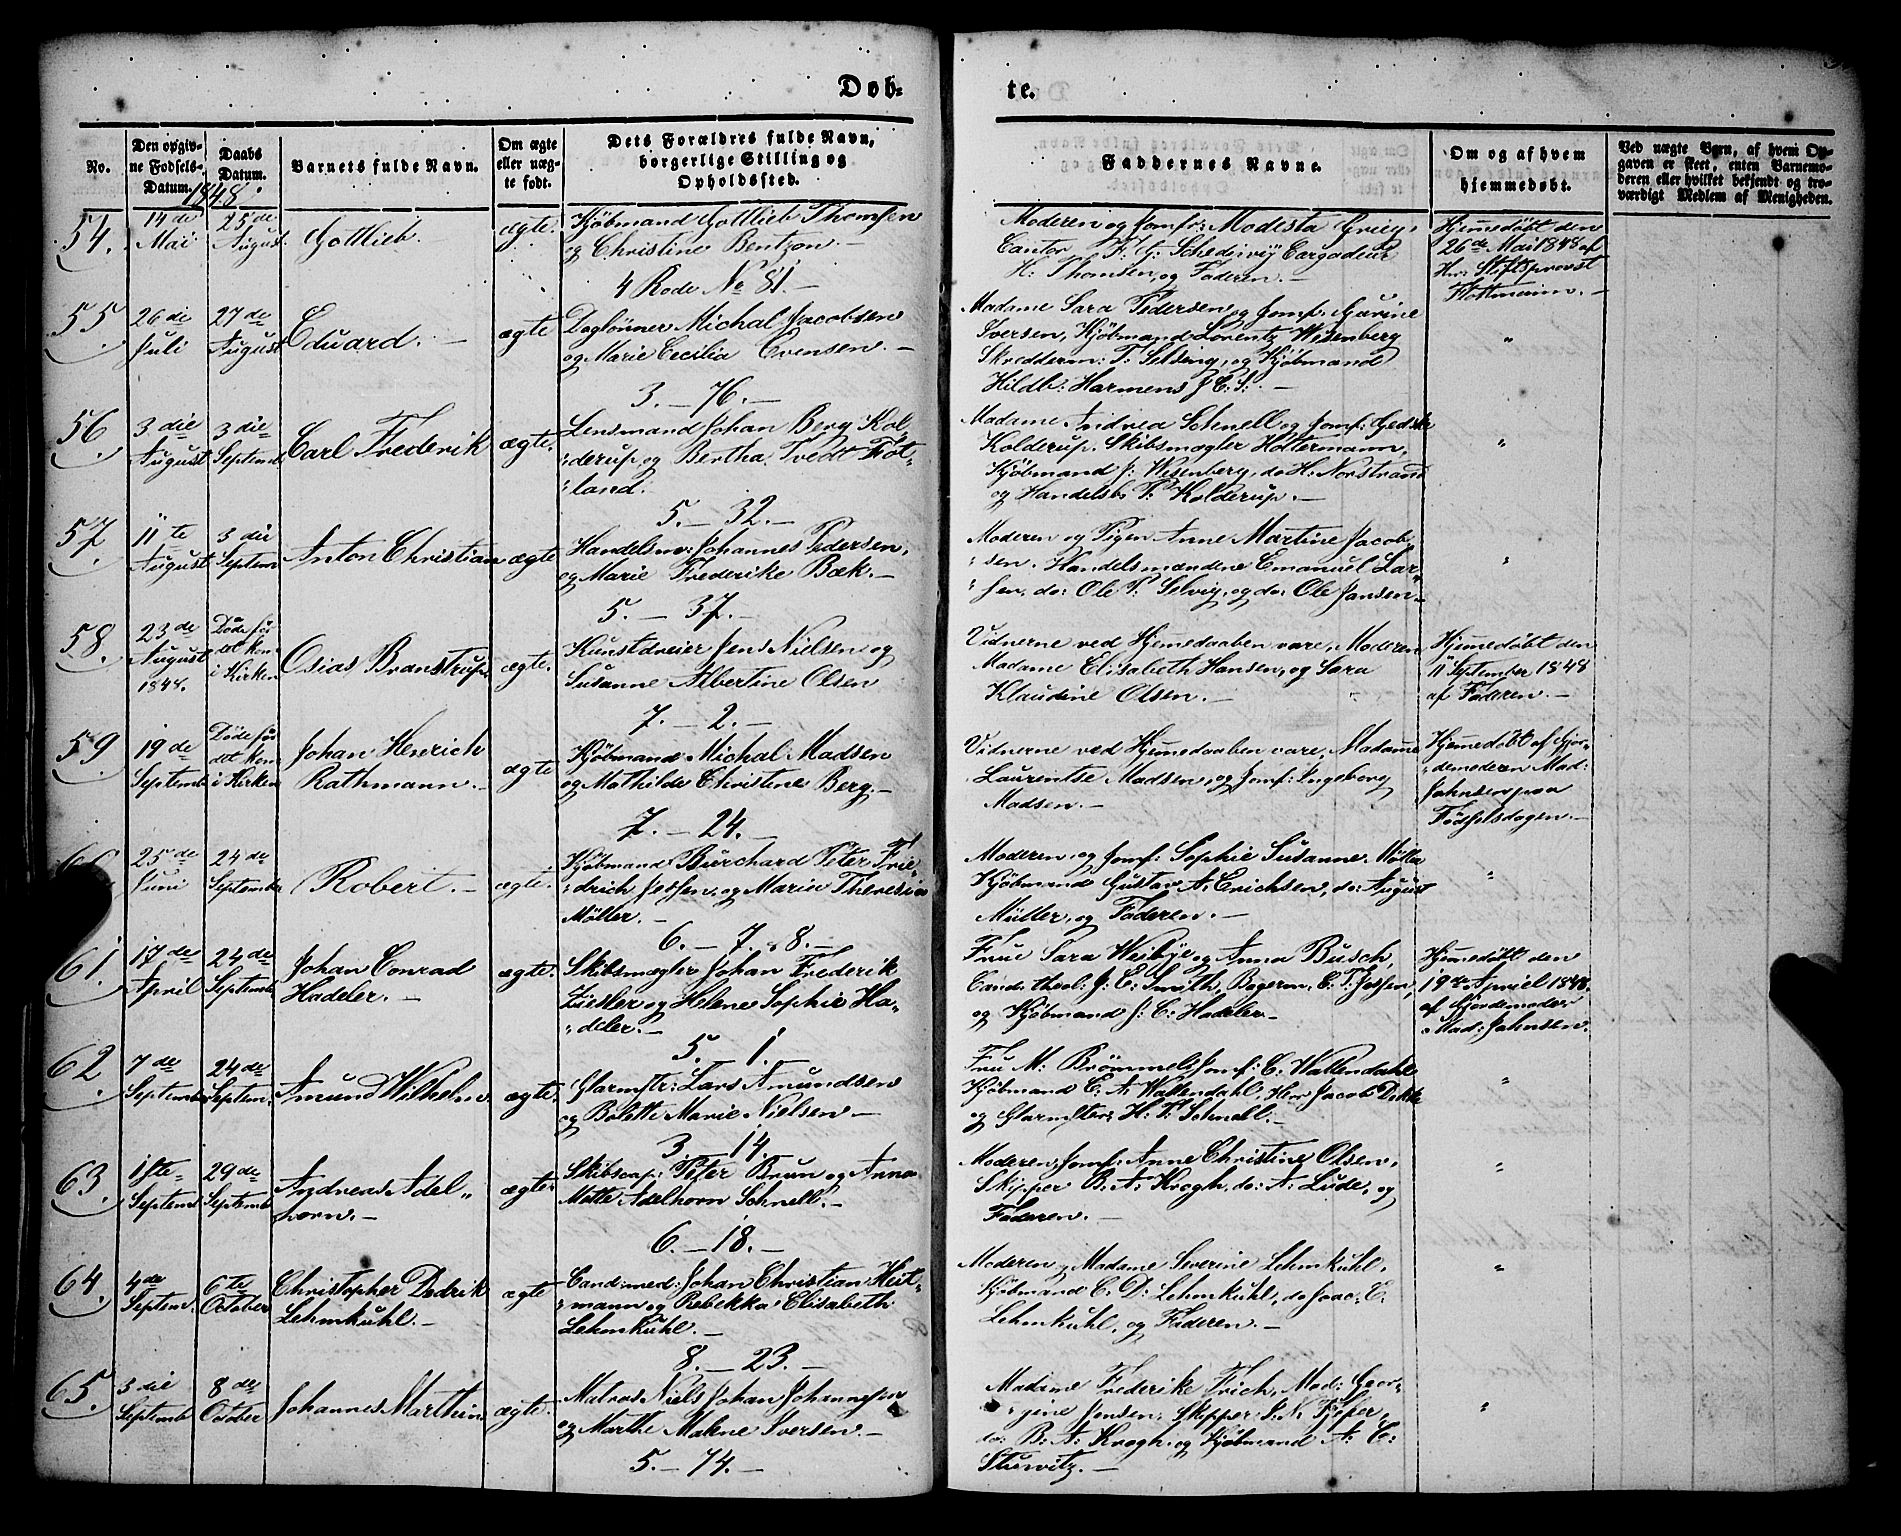 Døb=
te.
No.
Den opgiv-
ne Fødsels-
Datum.
1848.
Daabs
Datum.
Barnets fulde Navn.
Om ægte
eller uæg-
te født.
Dets Forældres fulde Navn,
borgerlige Stilling og
Opholdssted.
Faddernes Navne.
Om og af hvem
hjemmedøbt.
Ved uægte Børn, af hvem Op-
gaven er skeet, enten Barnemo-
deren eller hvilket bekjendt og tro-
værdigt Medlem af Menigheden.
54.
14de
Mai
25de
August.
Gottlieb.
ægte.
Kjøbmand Gottlieb Thomsen
og Christine Bentzon.—
4 Rode No 81.—
Moderen og Jomfr: Modesta Grieg,
Cantor F. G: Schediwy Cargadeur
H. Thomsen, og Faderen.—
Hjemedøbt den
26de Mai 1848 af
Hr: Stiftsprovst
55.
26de
Juli
27de
August
Eduard.—
ægte
Daglønner Michal Jacobsen
og Marie Cecilia Evensen.—
3.—76.—
Madame Sara Pedersen og Jomf: Gurine
Iversen, Kjøbmand Lorentz Wesenberg
Skredderm: T: Selsing, og Kjøbmand
Hildb: Harmens J. C. S:—
"
56
3die
August
3die
Septemb
Carl Frederik
ægte.
Lensmand Johan Berg Kol-
:derup, og Bertha TvedtFøt-
:land.
5.—32.—
Madame Andrea Schnell og Jomf: Gedske
Kolderup. Skibsmægler Holtermann,
Kjøbmand J: Wesenberg, do H. Norstrand
og Handelsb. P. Kolderup.—
"
57.
11te
August
3die
Septem
Anton Christian
ægte
Handelsm: Johannes Pedersen,
og Marie Frederike Bæk.—
5.—37.—
Moderen og Pigen Anne Martine Jacob-
:sen. Handelsmændene Emanuel Lar-
:sen, do: Ole P. Selvig, og do: Ole Jansen—
"
58.
23de
August
1848.
Døde før
det kom
i Kirken
Osias Branstrup.
ægte.
Kunstdreier Jens Nielsen og
Susanne Albertine Olsen
7.—2.—
Vidnerne ved Hjemedaaben vare, Moderen
Madame Elisabeth Hansen, og Sara
Klaudine Olsen.—
Hjemedøbt den
11 September 1848
af Faderen.—
59
19de
Septemb
Døde før
det kom
i Kirken
Johan Henrich
Rathmann.
ægte
Kjøbmand Michal Madsen
og Mathilde Christine Berg.—
7.—24.—
Vidnerne ved Hjemedaaben vare, Madame
Laurentse Madsen, og Jomf: Ingeborg
Madsen.—
Hjemedøbt af Gjor-
:demoderen Mad:
Jahnsen paa
Fødselsdagen.—
25de
Juni
24de
Septembr
Robert.—
ægte.
Kjøbmand Burchard Peter Frie-
:drich Jessen, og Maria Theresia
Møller.—
6.—7.8.—
Moderen, og Jomf: Sophie Susanne Møller
Kjøbmand Gustav A: Erichsen, do: August
Müller, og Faderen.—
"
61.
17de
April
24de
Septemb
Johan Conrad
Hadeler.—
ægte.
Skibsmægler Johan Frederik
Ziesler og Helene Sophie Ha-
:deler.—
5. 1.
Frue Sara Weibye og Anna Busch,
Cand: theol: J: E: Smith, Bagerm. C. T. Jessen,
og Kjøbmand J: C: Hadeler—
Hjemedøbt den
19de Apriel 1848.
af Gjordemoder
Mad: Jahnsen.
62.
7de
Septemb
24de
Septem.
Amund Wilhelm
ægte.
Glarmstr: Lars Amundsen
og Bolette Marie Nielsen—
3. 14.
Fru M: Brömmels Jomf: C: Wallendahl
Kjøbmand C: A: Wallendahl. Herr Jacob Dekke
og Glarmester H: T: Schnell.—
"
63.
1ste
Septemb
29de
Septemb
Andreas Adel"
horn.—
ægte.
Skibscap: Peter Brun og Anna
Mette Adelhorn Schnell.—
6.—18.—
Moderen, Jomf: Anne Christine Olsen,
Skipper B: A: Krogh, do: A: Lude, og
Faderen.—
"
64.
4de
Septem.
6te
October
Christopher Dedrik
Lehmkuhl.—
ægte
Cand: med: Johan Christian Heit-
:mann og Rebekka Elisabeth
Lehmkuhl.—
8.—23.—
Moderen og Madame Severine Lehmkuhl,
Kjøbmand C. D: Lehmkuhl, do Joac: E.
Lehmkuhl, og Faderen.—
"
65.
3die
Septemb
8de
October
Johannes Marthin
ægte.
Matros Niels Johan Johannesen
og Marthe Malene Iversen.—
5.—74.—
Madame Frederike Frich, Mad: Geor-
:gine Jensen, Skipper
do: B: A: Krogh, og Kjøbmand A: C:
Sturvitz.—
"